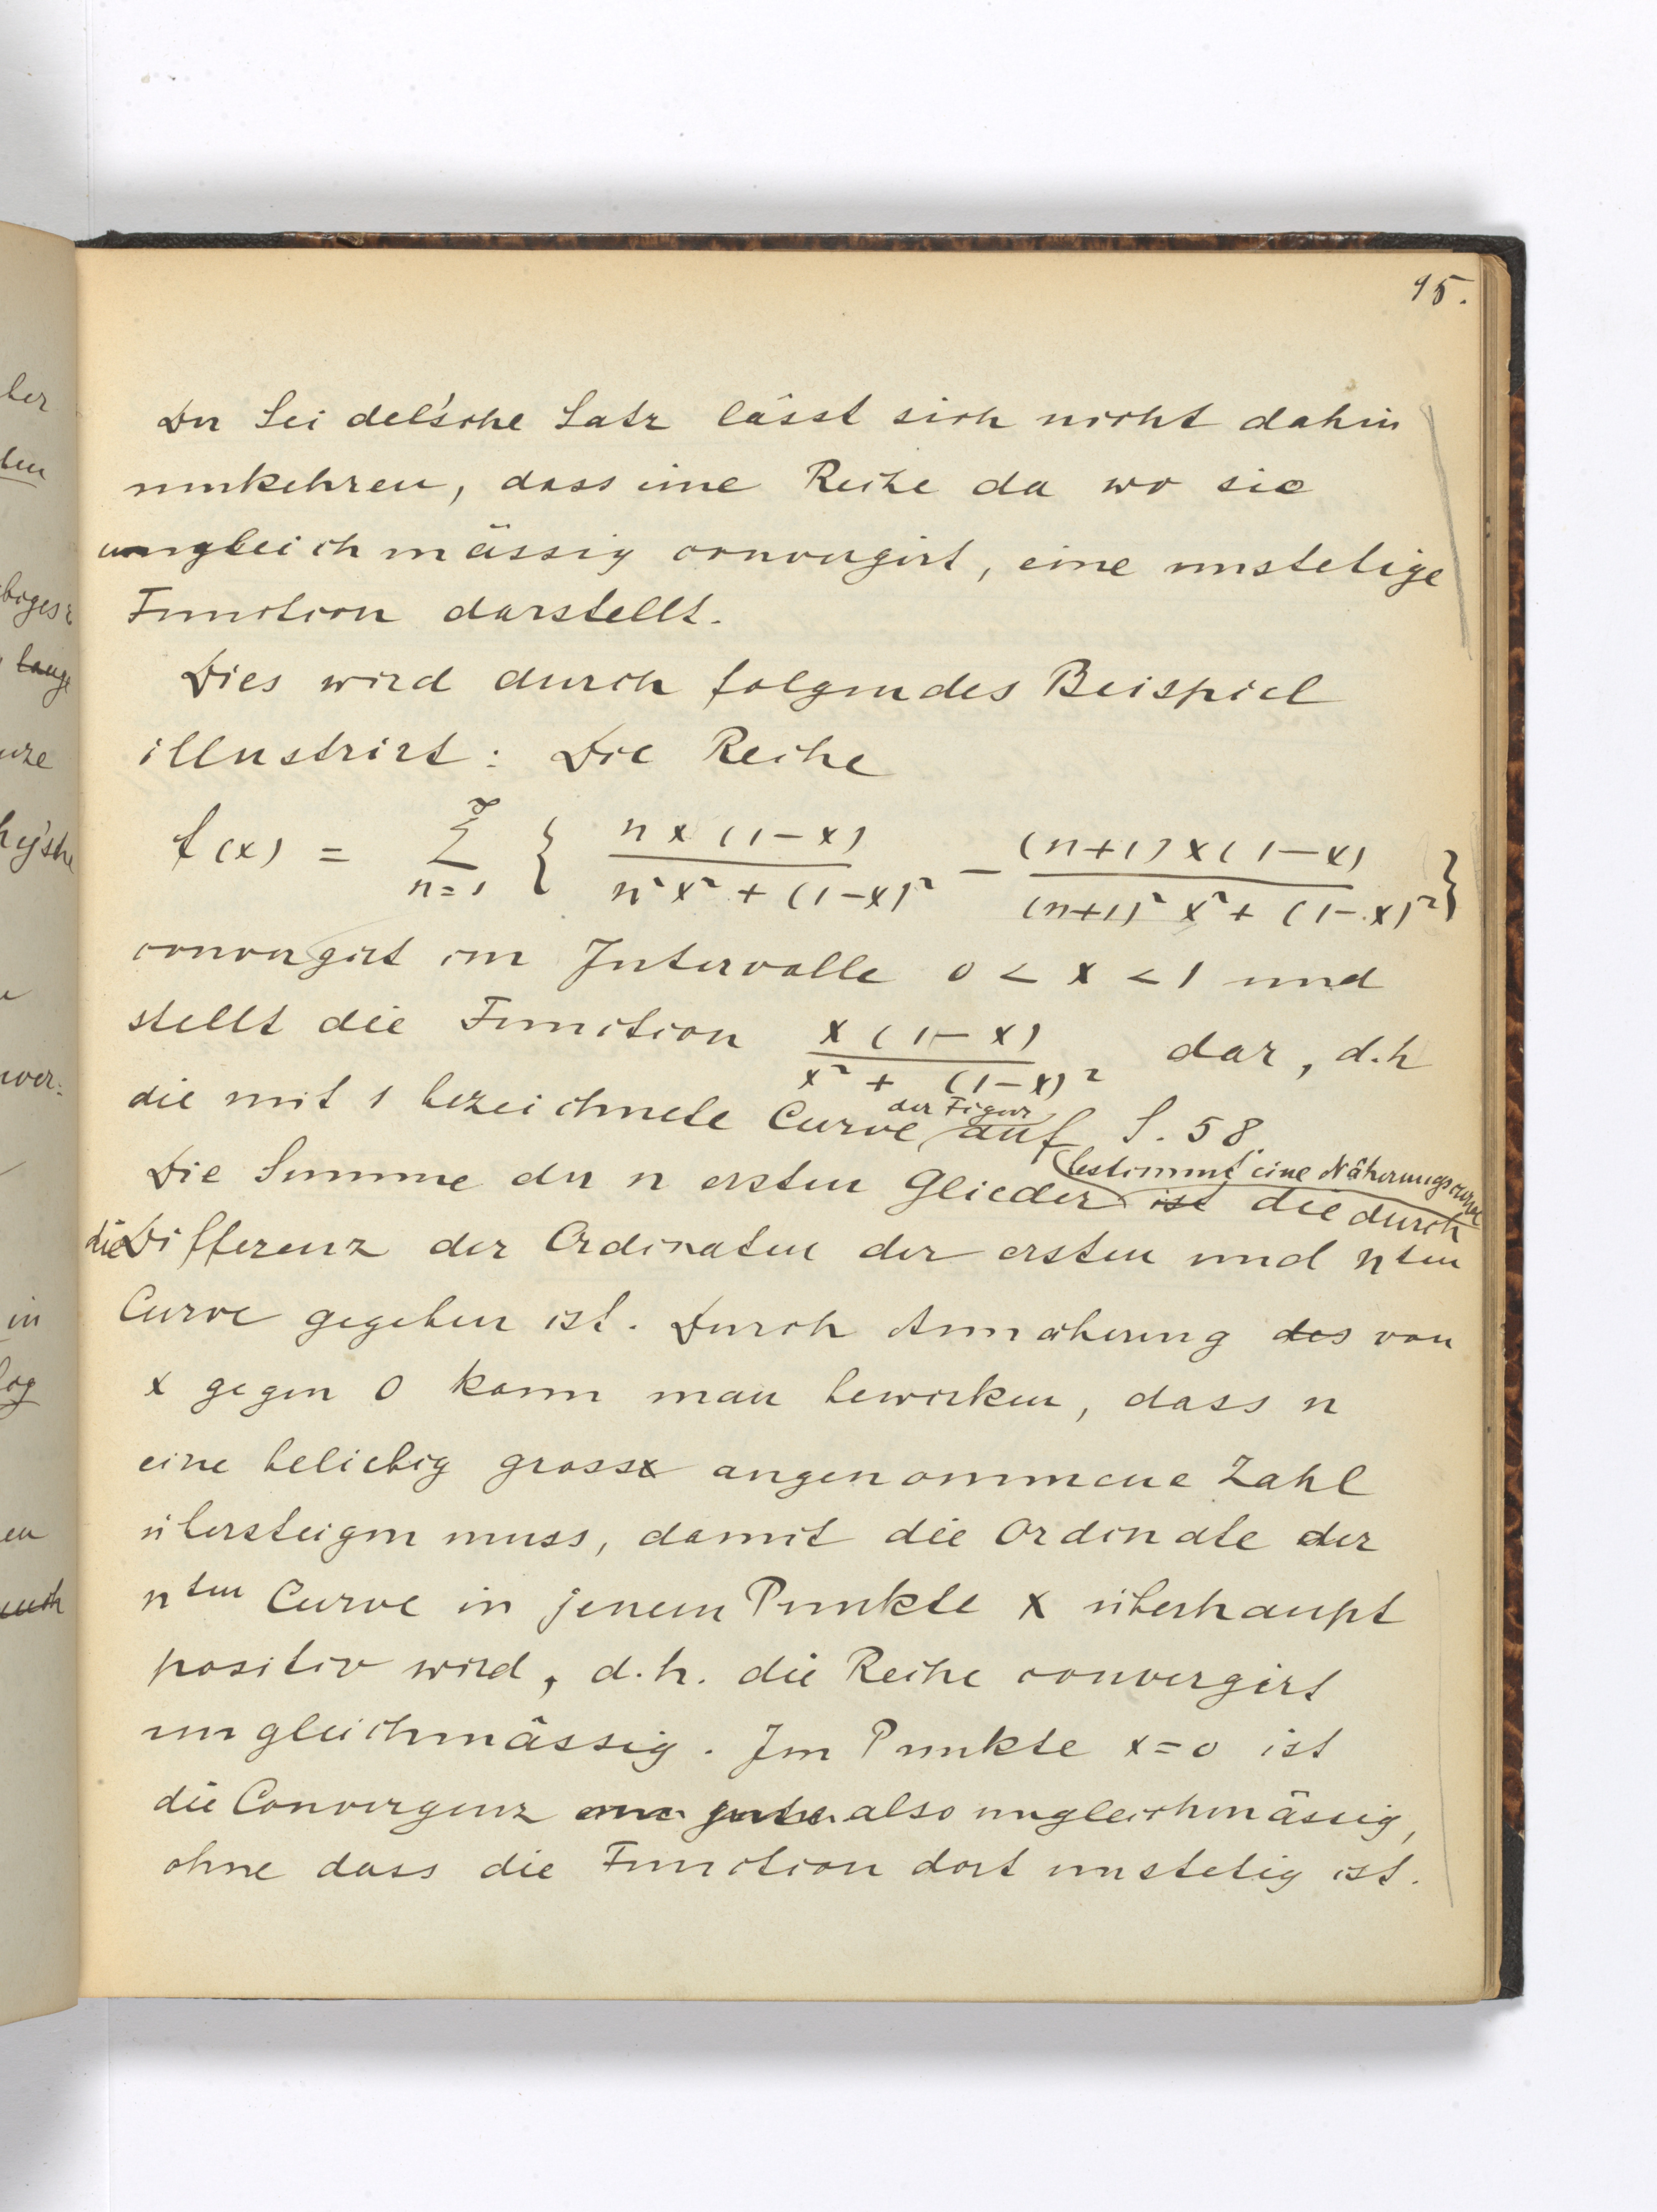 95.
Der Seidel'sche Satz lässt sich nicht dahin
umkehren, dass eine Reihe da wo sie
ungleichmässig convergirt, eine unstetige
Function darstellt.
Dies wird durch folgendes Beispiel
illustrirt: Die Reihe
f(x) = ∑_{n=1}^{∞} { nx(1-x) / (n²x² + (1-x)²) − (n+1)x(1-x) / ((n+1)²x² + (1-x)²) }
convergirt im Intervalle 0 < x < 1 und
stellt die Function x(1-x) / (x² + (1-x)²) dar, d.h
die mit 1 bezeichnete Curve der Figur auf S. 58.
Die Summe der n ersten Glieder ist bestimmt eine Näherungscurve die durch
die Differenz der Ordinaten der ersten und nten
Curve gegeben ist. Durch Annäherung des von
x gegen 0 kann man bewirken, dass n
eine beliebig gross angenommene Zahl
übersteigen muss, damit die Ordinate der
nten Curve in jenem Punkte x überhaupt
positiv wird, d.h. die Reihe convergirt
ungleichmässig. Im Punkte x=0 ist
die Convergenz also ungleichmässig,
ohne dass die Function dort unstetig ist.
ber
uze
wer:
in
log
en